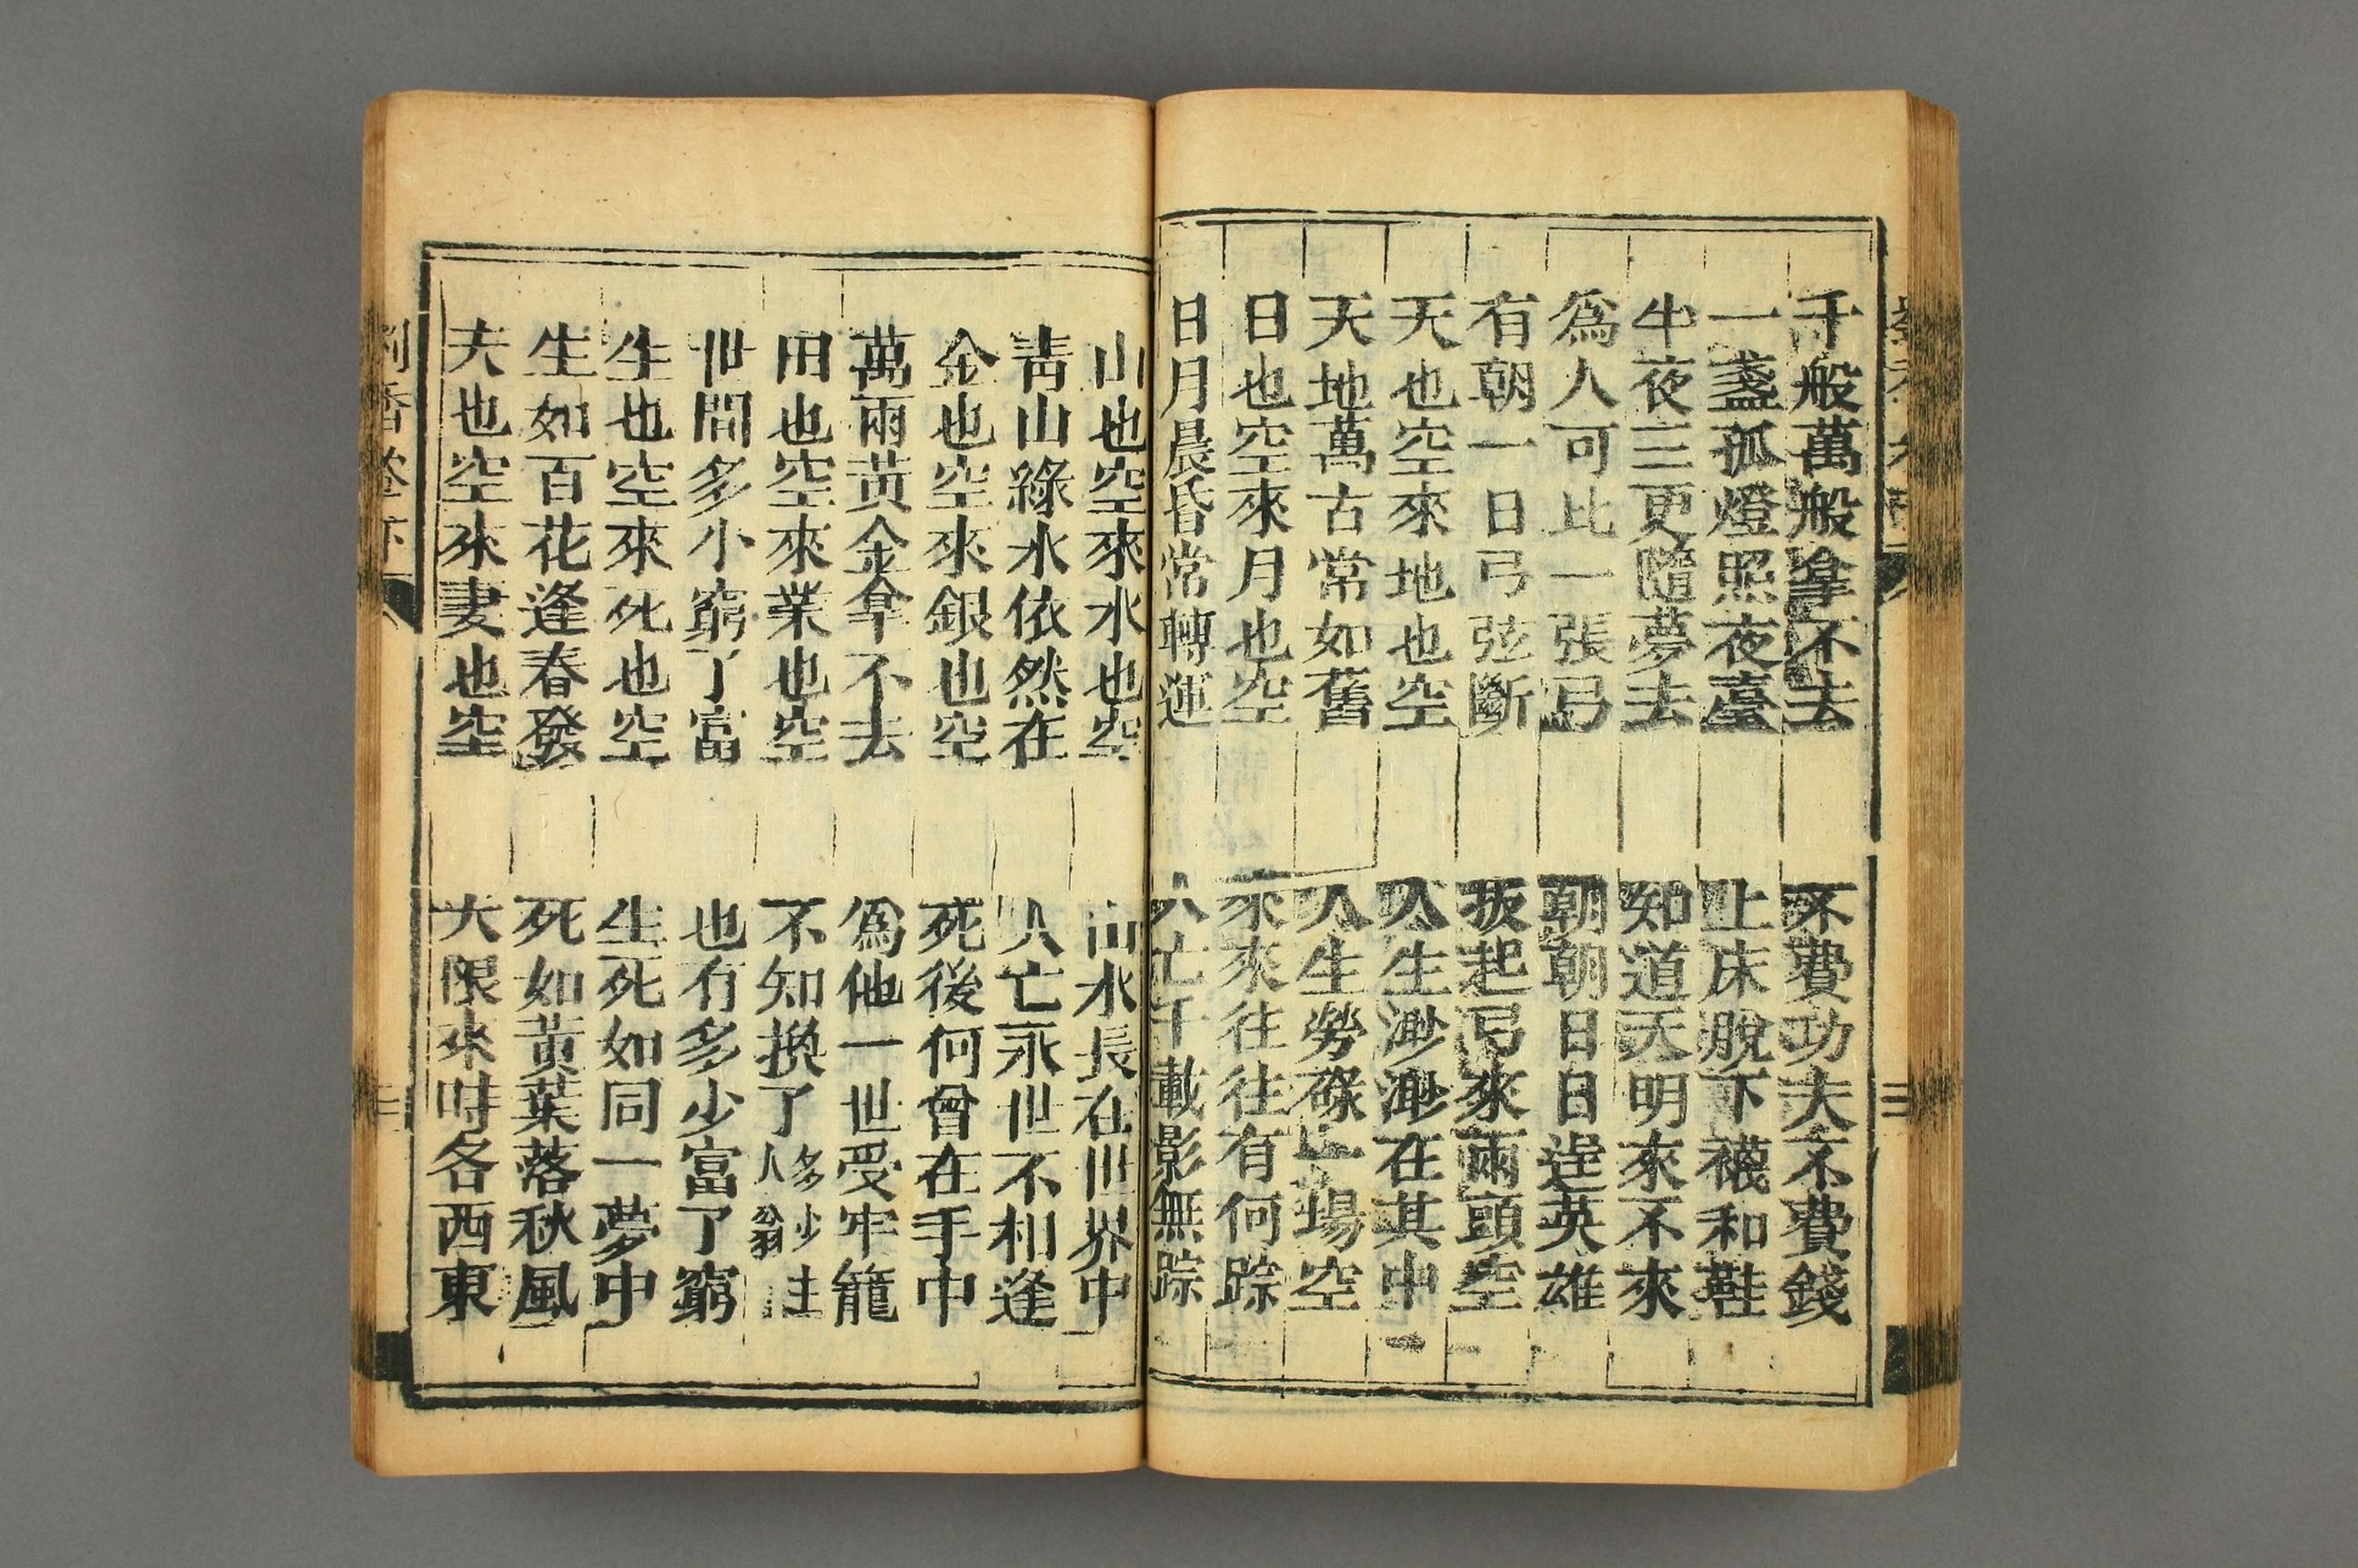 千般萬般拿不去 不費功夫不費錢
一盞孤燈照夜臺 上床脫下襪和鞋
牛夜三更隨夢去 知道天明來不來
為人可比一張弓 朝朝日日逞英雄
有朝一日弓弦斷 扳起弓來兩頭空
天也空來地也空 人生渺渺在其中
天地萬古常如舊 人生勞碌一場空
日也空來月也空 來來往往有何踪
日月晨昏常轉運 人亡千載影無踪
山也空來水也空 山水長在世界中
青山綠水依然在 人亡永世不相逢
金也空來銀也空 死後何曾在手中
萬兩黃金拿不去 為他一世受牢籠
田也空來業也空 不知換了多少人翁
世間多小窮了富 也有多少富了窮
生也空來死也空 生死如同一夢中
生如百花逢春發 死如黃葉落秋風
夫也空來妻也空 大限來时各西東
劉香